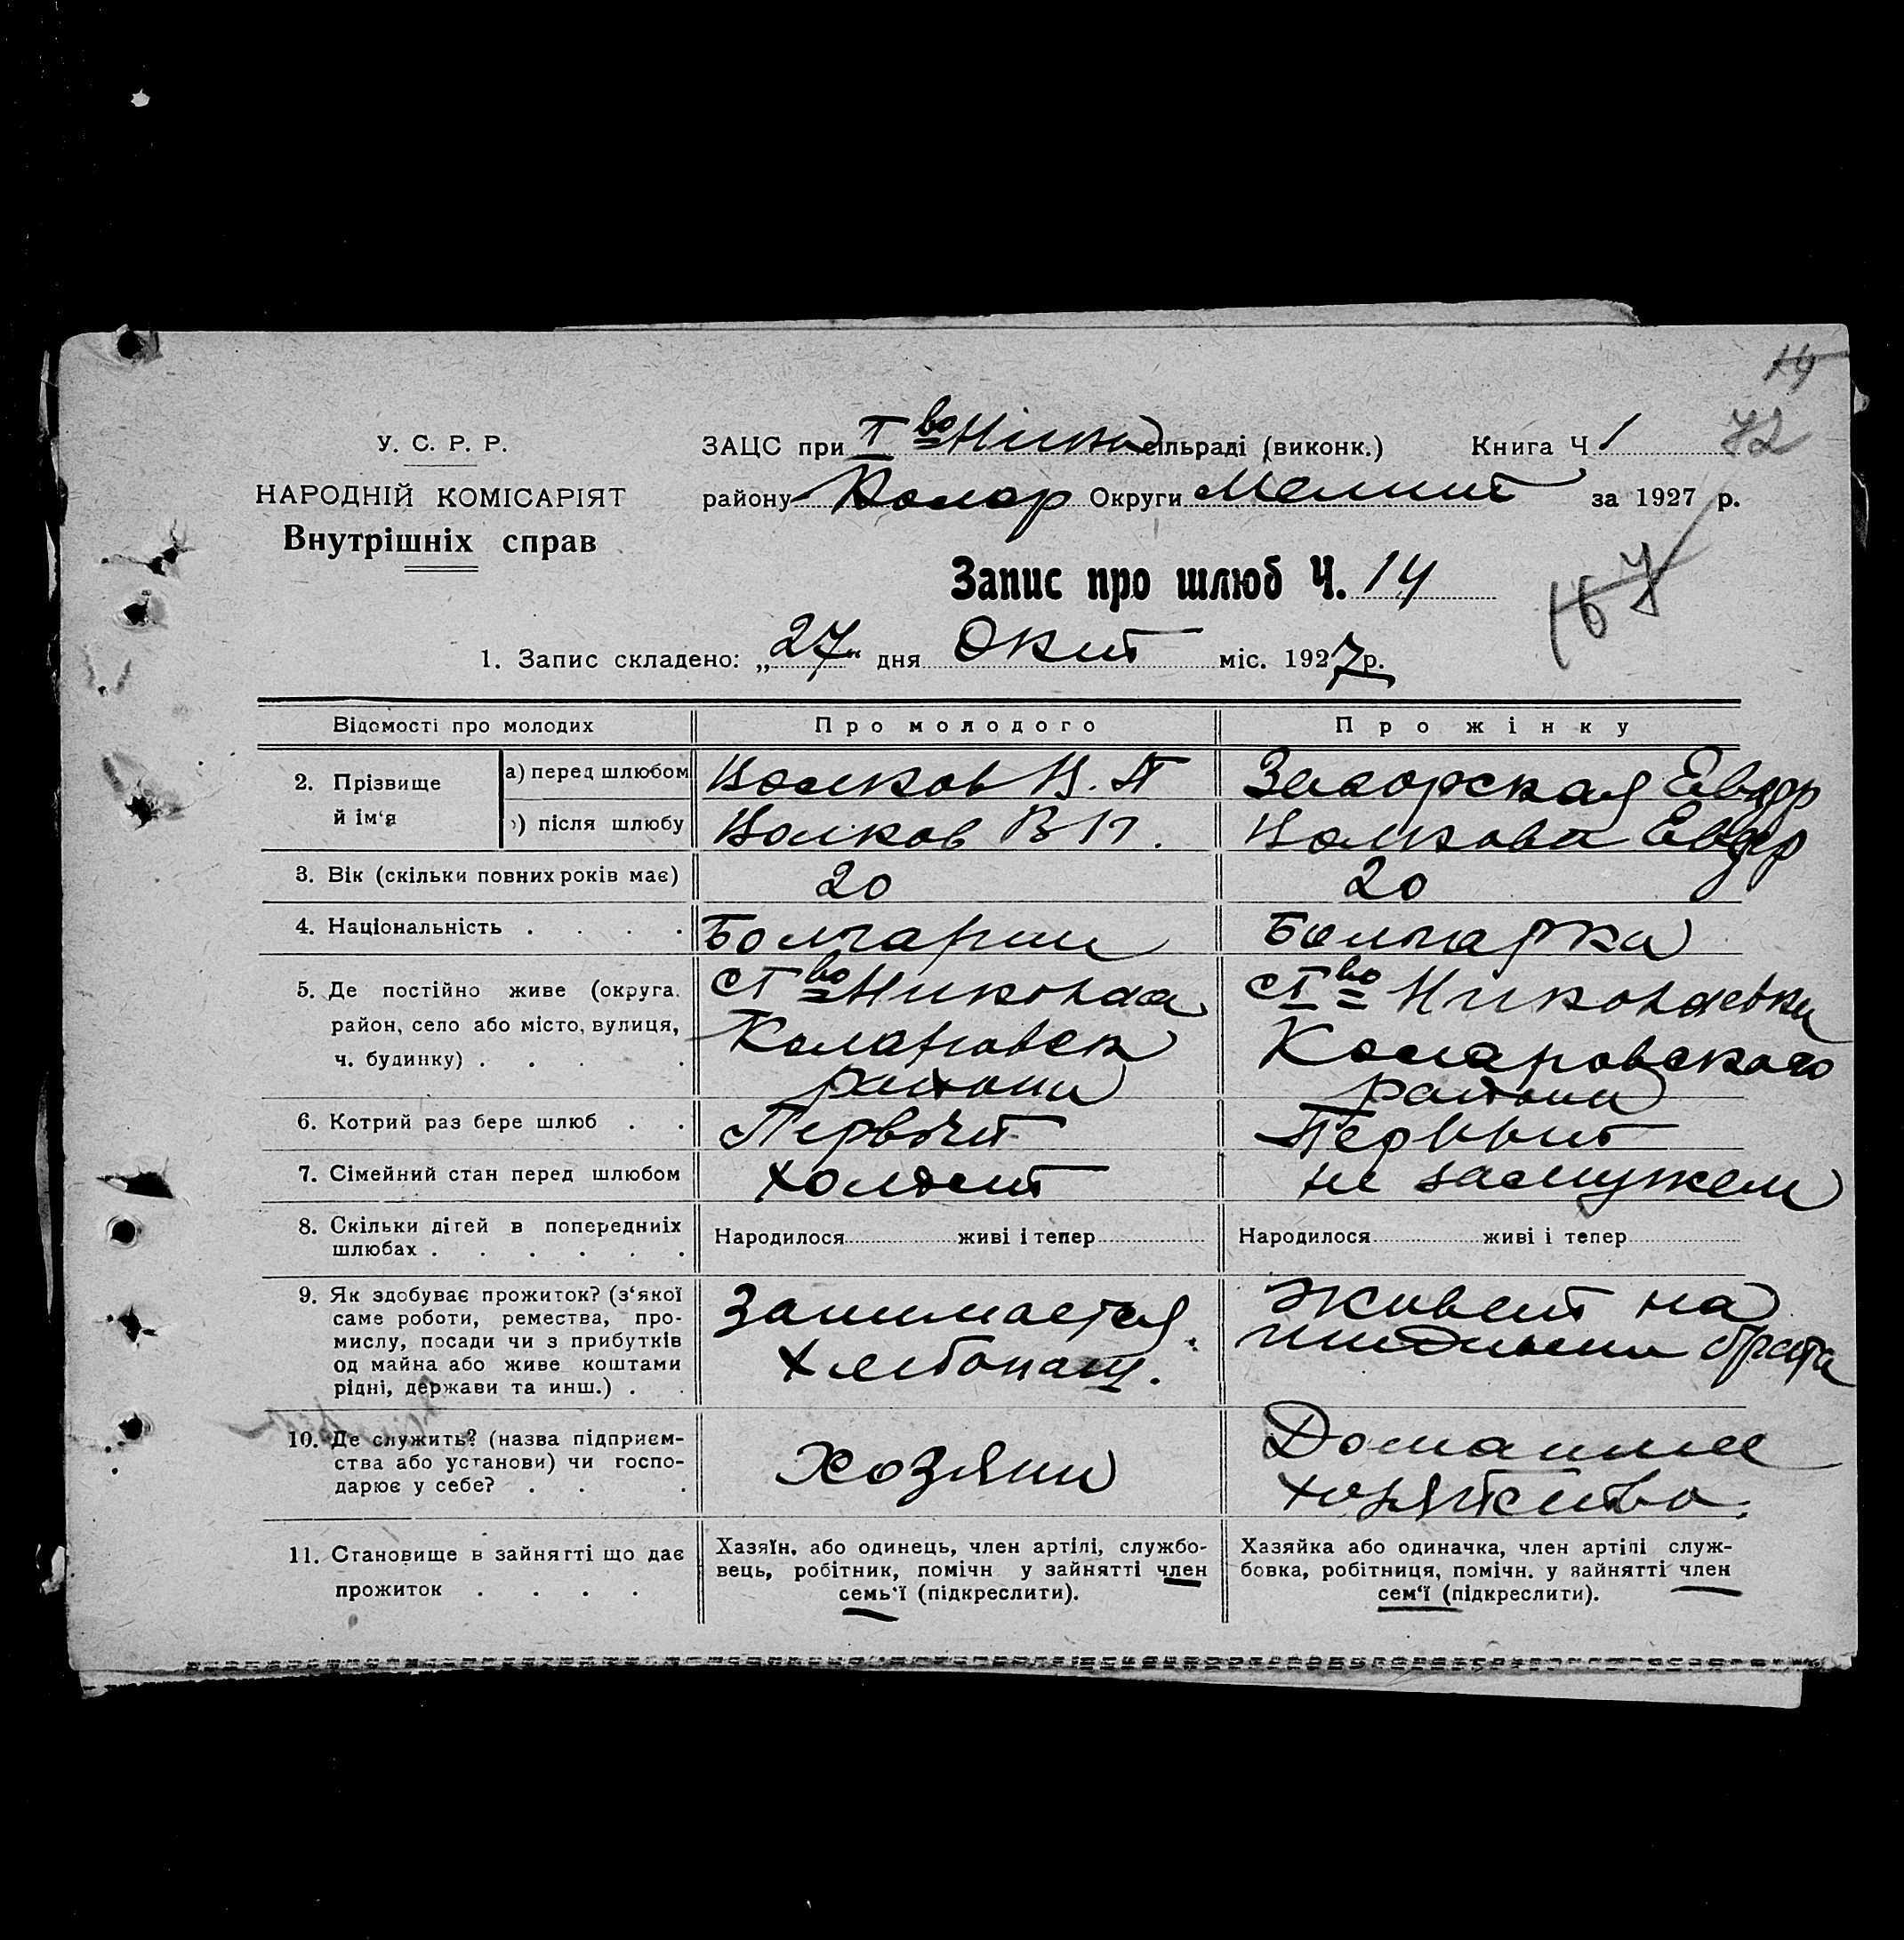 14
72
У. С. Р. Р.
НАРОДНІЙ КОМІСАРІЯТ
Внутрішніх справ
ЗАЦС при сільраді (виконк.) Книга Ч 1
району Колар Округи Мелит за 1927 р.
167
Запис про шлюб Ч. 14
1. Запис складено: „27“ дня Окит міс. 1927 р.
Відомості про молодих Про молодого Про жінку
2. Прізвище й ім‘я
а) перед шлюбом Волков В. П Загорская Евдр
б) після шлюбу Волков В П. Волкова Евдр
3. Вік (скільки повних років має) 20 20
4. Національність . . . . Болгарин Болгарка
5. Де постійно живе (округа,
район, село або місто, вулиця,
ч. будинку) . . . .
ст во Николаев
Коларовск
района
ст во Николаевки
Коларовского
района
6. Котрий раз бере шлюб . . Первый Первый
7. Сімейний стан перед шлюбом холост не замужем
8. Скільки дітей в попередніх
шлюбах . . . . . .
Народилося живі і тепер
Народилося живі і тепер
9. Як здобуває прожиток? (з‘якої
саме роботи, ремества, про-
мислу, посади чи з прибутків
од майна або живе коштами
рідні, держави та инш.) . .
Занимается
хлебопаш.
живет на
иждивении брата
10. Де служить? (назва підприєм-
ства або установи) чи госпо-
дарює у себе? . . .
хозяин
Домашнее
хозяйство.
11. Становище в зайнятті що дає
прожиток . . . .
Хазяїн, або одинець, член артілі, службо-
вець, робітник, помічн у зайнятті член
семь‘ї (підкреслити).
Хазяйка або одиначка, член артілі служ-
бовка, робітниця, помічн. у зайнятті член
сем‘ї (підкреслити).